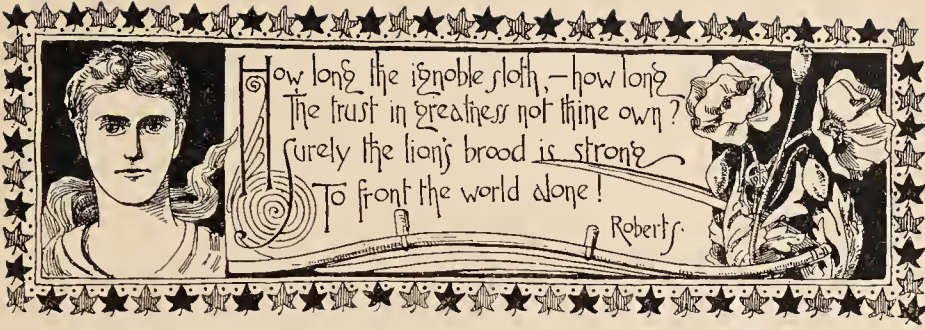 How long the ignoble sloth, – how long
The trust in greatness not thine own?
Surely the lion's brood is strong
To front the world alone!
Roberts.